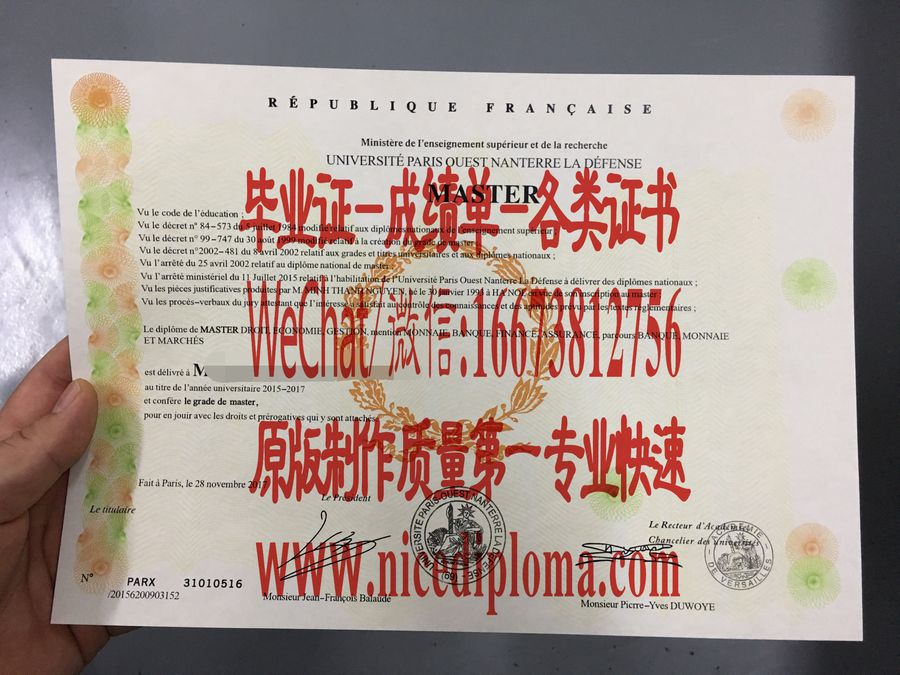 RÉPUBLIQUE FRANÇAISE
Ministère de l'enseignement supérieur et de la recherche
UNIVERSITÉ PARIS OUEST NANTERRE LA DÉFENSE
MASTER
毕业证–成绩单–各类证书
Vu le code de l'éducation ;
Vu le décret n° 84–573 du 5 juillet 1984 modifié relatif aux diplômes nationaux de l'enseignement supérieur ;
Vu le décret n° 99–747 du 30 août 1999 modifié relatif à la création du grade de master ;
Vu le décret n°2002–481 du 8 avril 2002 relatif aux grades et titres universitaires et aux diplômes nationaux ;
Vu l'arrêté du 25 avril 2002 relatif au diplôme national de master ;
Vu l'arrêté ministériel du 11 Juillet 2015 relatif à l'habilitation de l'Université Paris Ouest Nanterre La Défense à délivrer des diplômes nationaux ;
Vu les pièces justificatives produites par M.MINH THANH NGUYEN, né le 30 janvier 1994 à au master ;
Vu les procès–verbaux du jury attestant que l'intéressé a satisfait au contrôle des connaissances et des aptitudes prévu par les textes réglementaires ;
WeChat/微信:16673812756
Le diplôme de MASTER DROIT, ECONOMIE, GESTION, mention MONNAIE, BANQUE, FINANCE, ASSURANCE, parcours BANQUE, MONNAIE
ET MARCHÉS
est délivré à M
au titre de l'année universitaire 2015–2017
et confère le grade de master,
pour en jouir avec les droits et prérogatives qui y sont attachés.
原版制作质量第一专业快速
Fait à Paris, le 28 novembre 2017
Le titulaire
Le Président
Le Recteur d'Académie
Chancelier des universités
UNIVERSITÉ PARIS-OUEST NANTERRE LA DÉFENSE
ACADEMIE DE VERSAILLES
WWW.nicediploma.com
N° PARX 31010516
/20156200903152
Monsieur Jean–François Balaudé
Monsieur Pierre–Yves DUWOYE